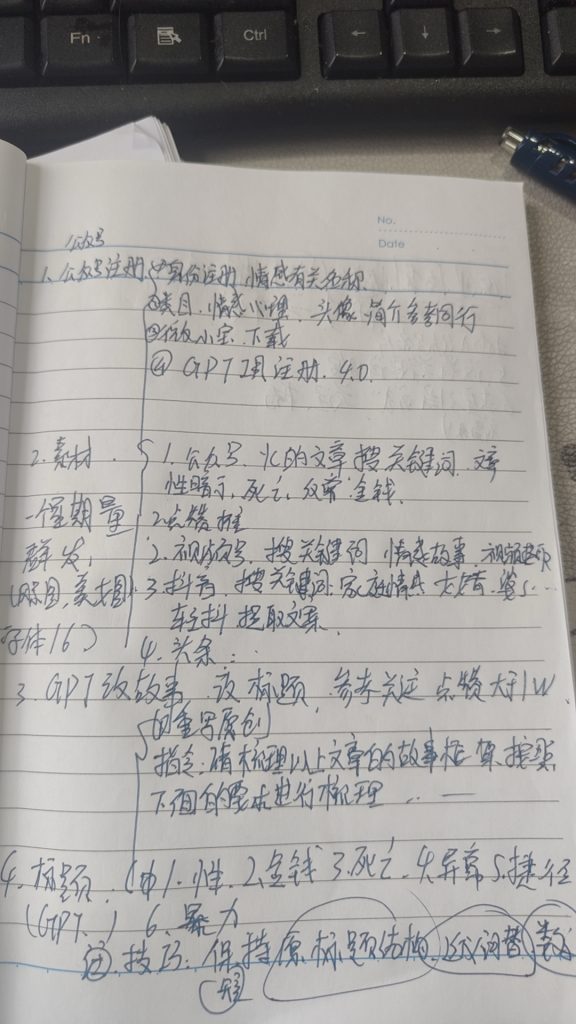 Fn
Ctrl
←
↓
→
No.
Date
公众号
1. 公众号注册 ①身份注册 情感有关名称
②类目. 情感心理. 头像 简介参考同行
③ 小宝. 下载
④ GPT 注册. 4.0.
2. 素材. 1. 公众号. 的文章 搜关键词.
性暗示, 死亡, 金钱.
一个星期量
2 点赞 推
群发, 2. 视频号, 搜关键词 情感故事. 视频
(原图, 美图) 3. 抖音, 搜关键词. 家庭情感
字体16) 轻抖 提取文案.
4. 头条...
3. GPT改故事. 改标题, 参考关注 点赞大于1W
的重写原创
指令: 请梳理以上文章的故事框架. 按照
下面的要求进行梳理 ... —
4. 标题. 1. 性. 2. 金钱 3. 死亡. 4. 异常 5. 捷径
(GPT.) 6. 暴力
技巧: 保持原标题结构. 词替